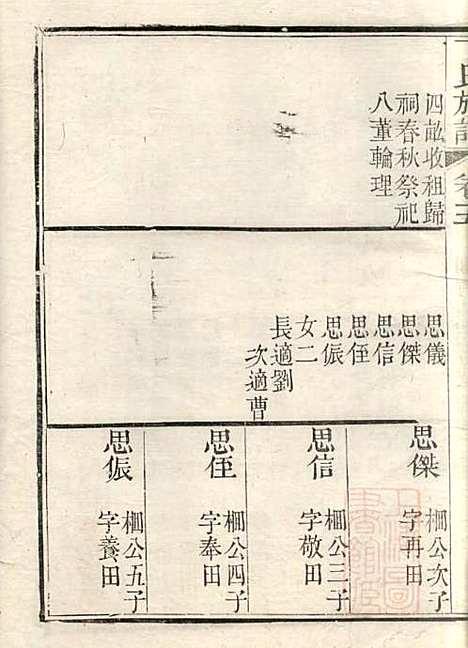 氏族譜
卷
四畝收租歸
祠春秋祭祀
八董輪理
思儀
思傑
思信
思侄
思侲
女二
長適劉
次適曹
思傑
棡公次子
字再田
思信
棡公三子
字敬田
思侄
棡公四子
字奉田
思侲
棡公五子
字養田